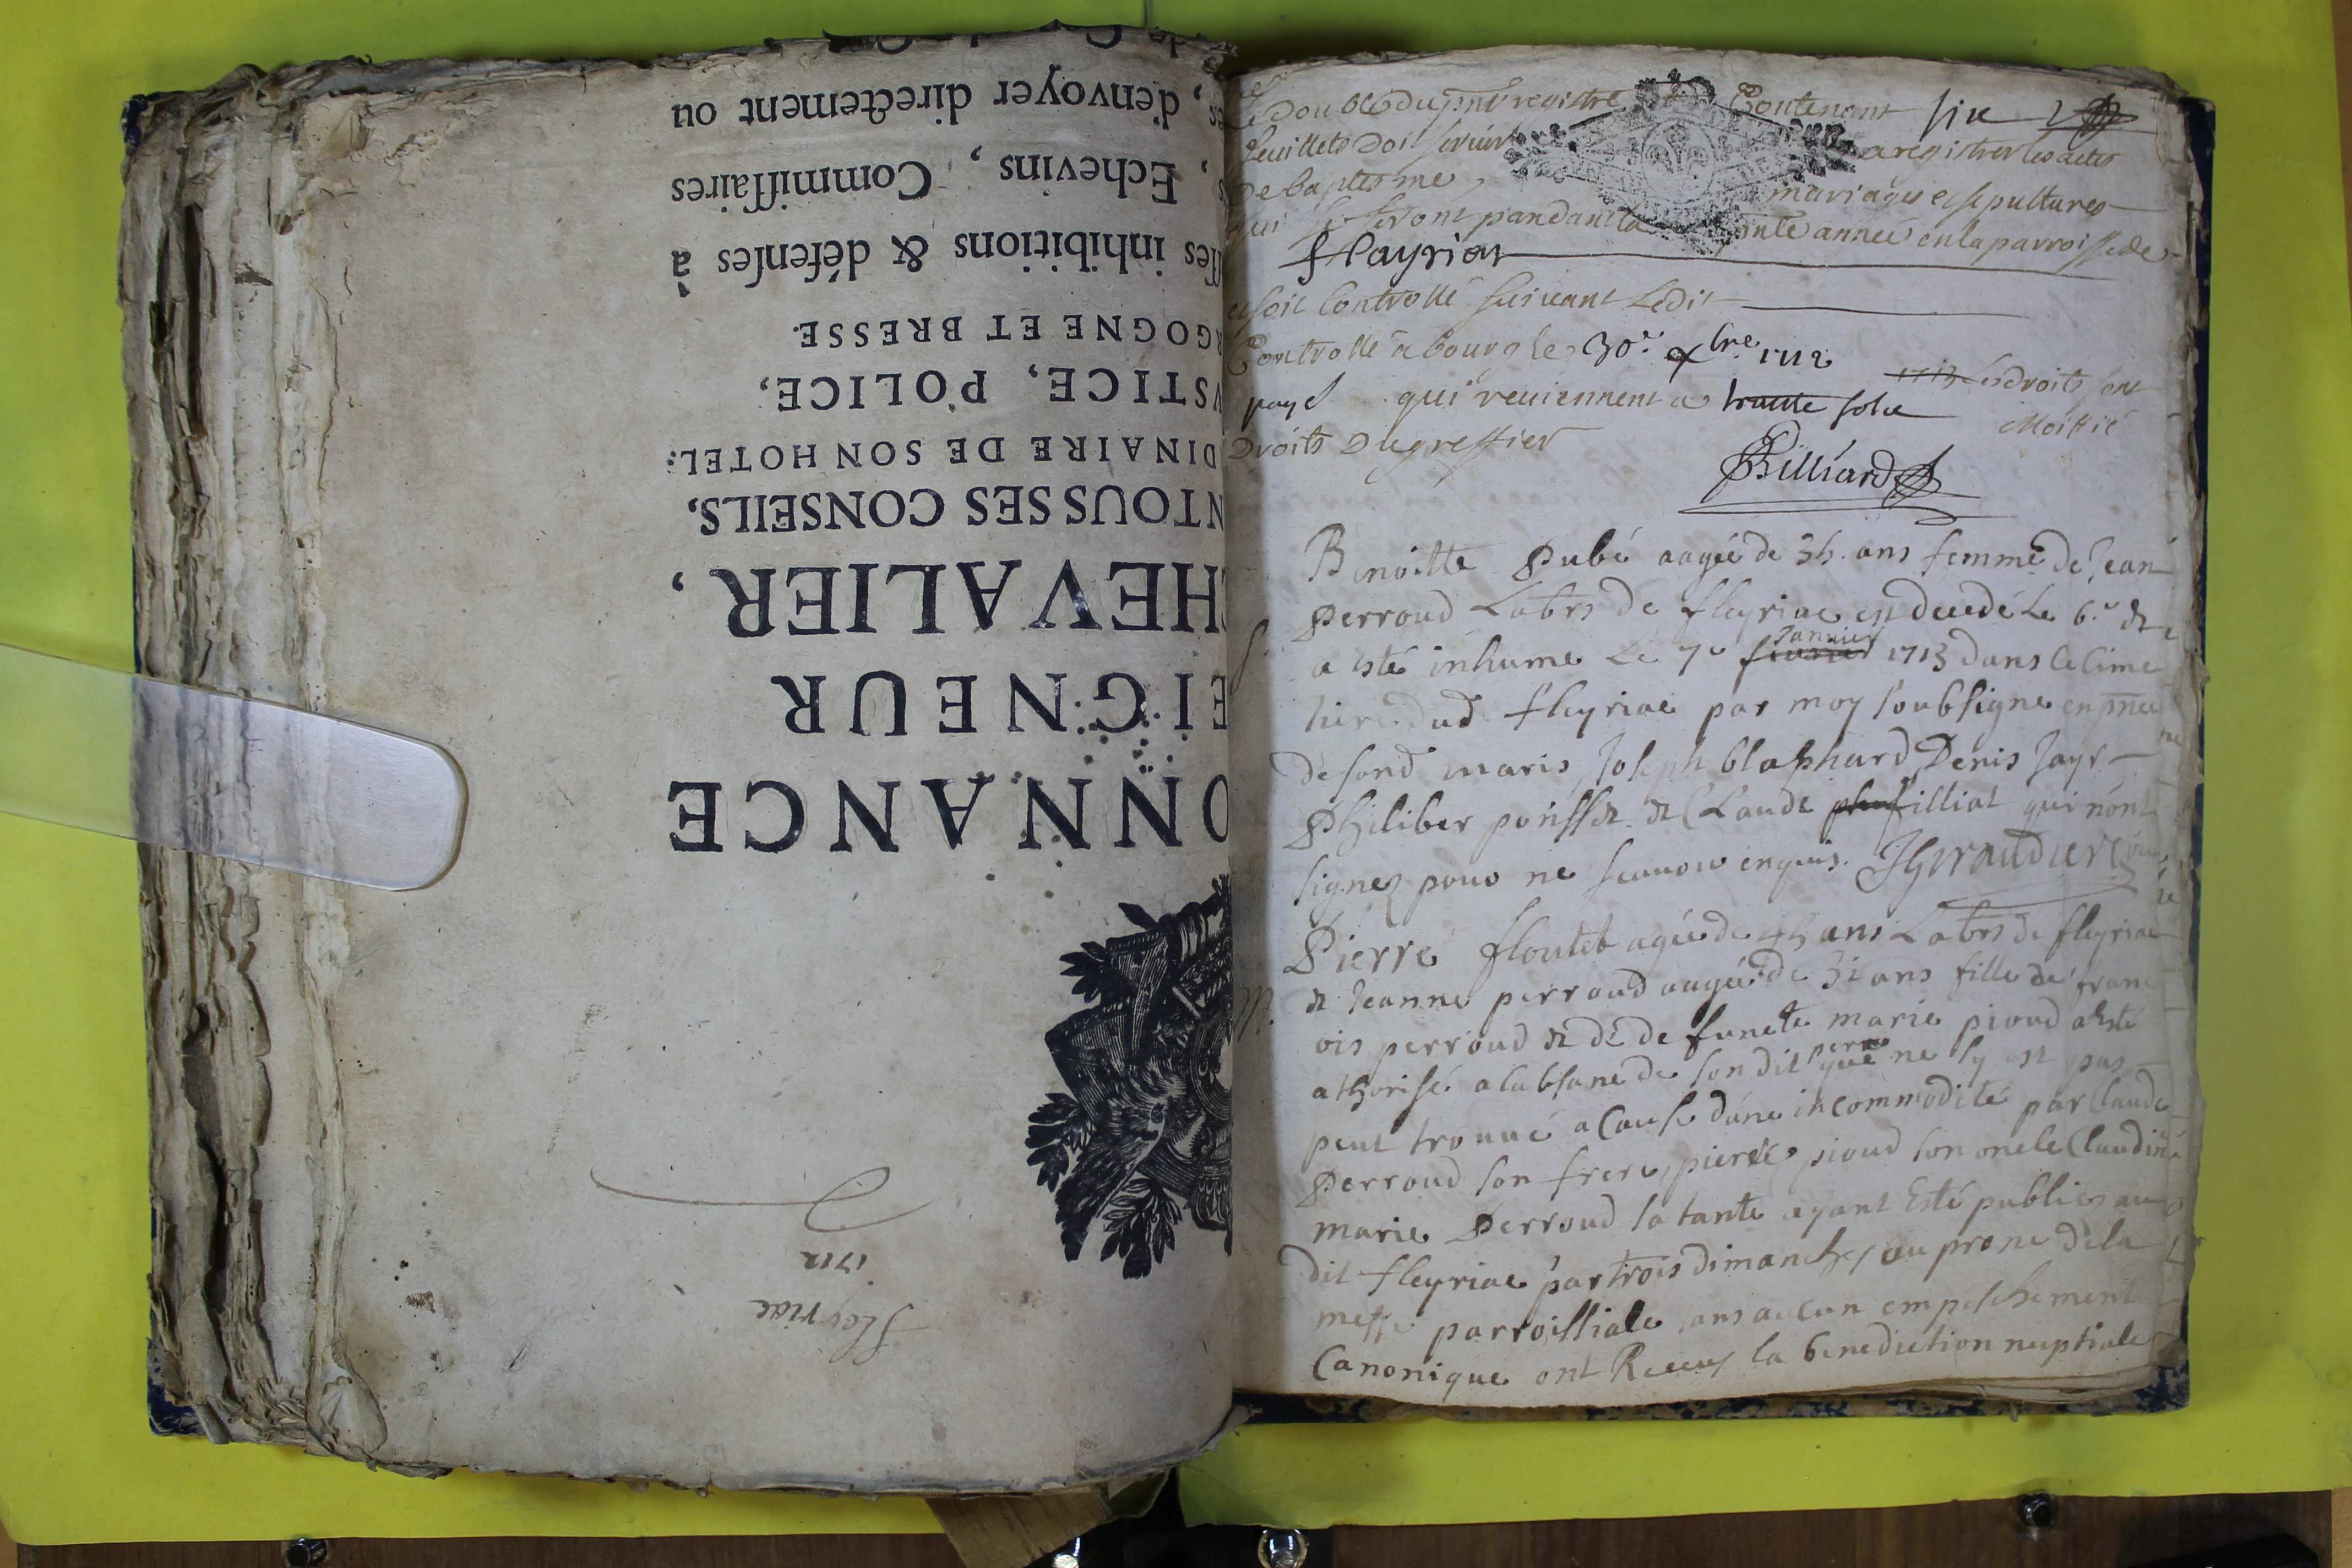 ONNANCE
EIGNEUR
HEVALIER,
NTOUSSES CONSEILS,
DINAIRE DE SON HOTEL:
VSTICE, POLICE,
GOGNE ET BRESSE.
ſſes inhibitions & défenſes à
Echevins, Commiſſaires
d'envoyer directement ou
fleyriac
1712
Le double du pnt registre Contenant six
feuillets doit servir a registrer les actes
de baptesme, mariages et sepultures
qui se feront pandant la pnte année en la parroisse de
fleyriat
et soit controllé suivant Ledit
Controllé a bourg le 30e xbre 1712
1713 Les droits ont
payé qui reviennent a trante sols Moittié
Droits du greffier
Billiard
Benoitte Pubé aagée de 35 ans femme de Jean
perroud Labrs de fleyriac est decedé Le 6e &
S. a esté inhume Le 7e feurier Januier 1713 dans le Cime
tiere dud fleyriac par moy soubsigne en pnce
de sond maris, Joseph blaphard, Denis Jayr
Philiber poisset & Claude filliat qui n'ont
signez pour ne scauoir enquis. JGiraud cure
Pierre floutet agée de 45 ans Labrs de fleyriac
M. & Jeanne perroud aagée de 31 ans fille de franc
ois perroud & de defuncte marie pioud a esté
athorisé a labsance de son dit perre que ne sy est pas
peut trouué a Cause dune incommodité par Claude
perroud son frere, pierre pioud son oncle Claudine
marie Perroud sa tante ayant Esté publiez au
dit fleyriac par trois dimanches au prone de la
messe parroissiale sans aucun empeschement
Canonique ont Receus la benediction nuptiale